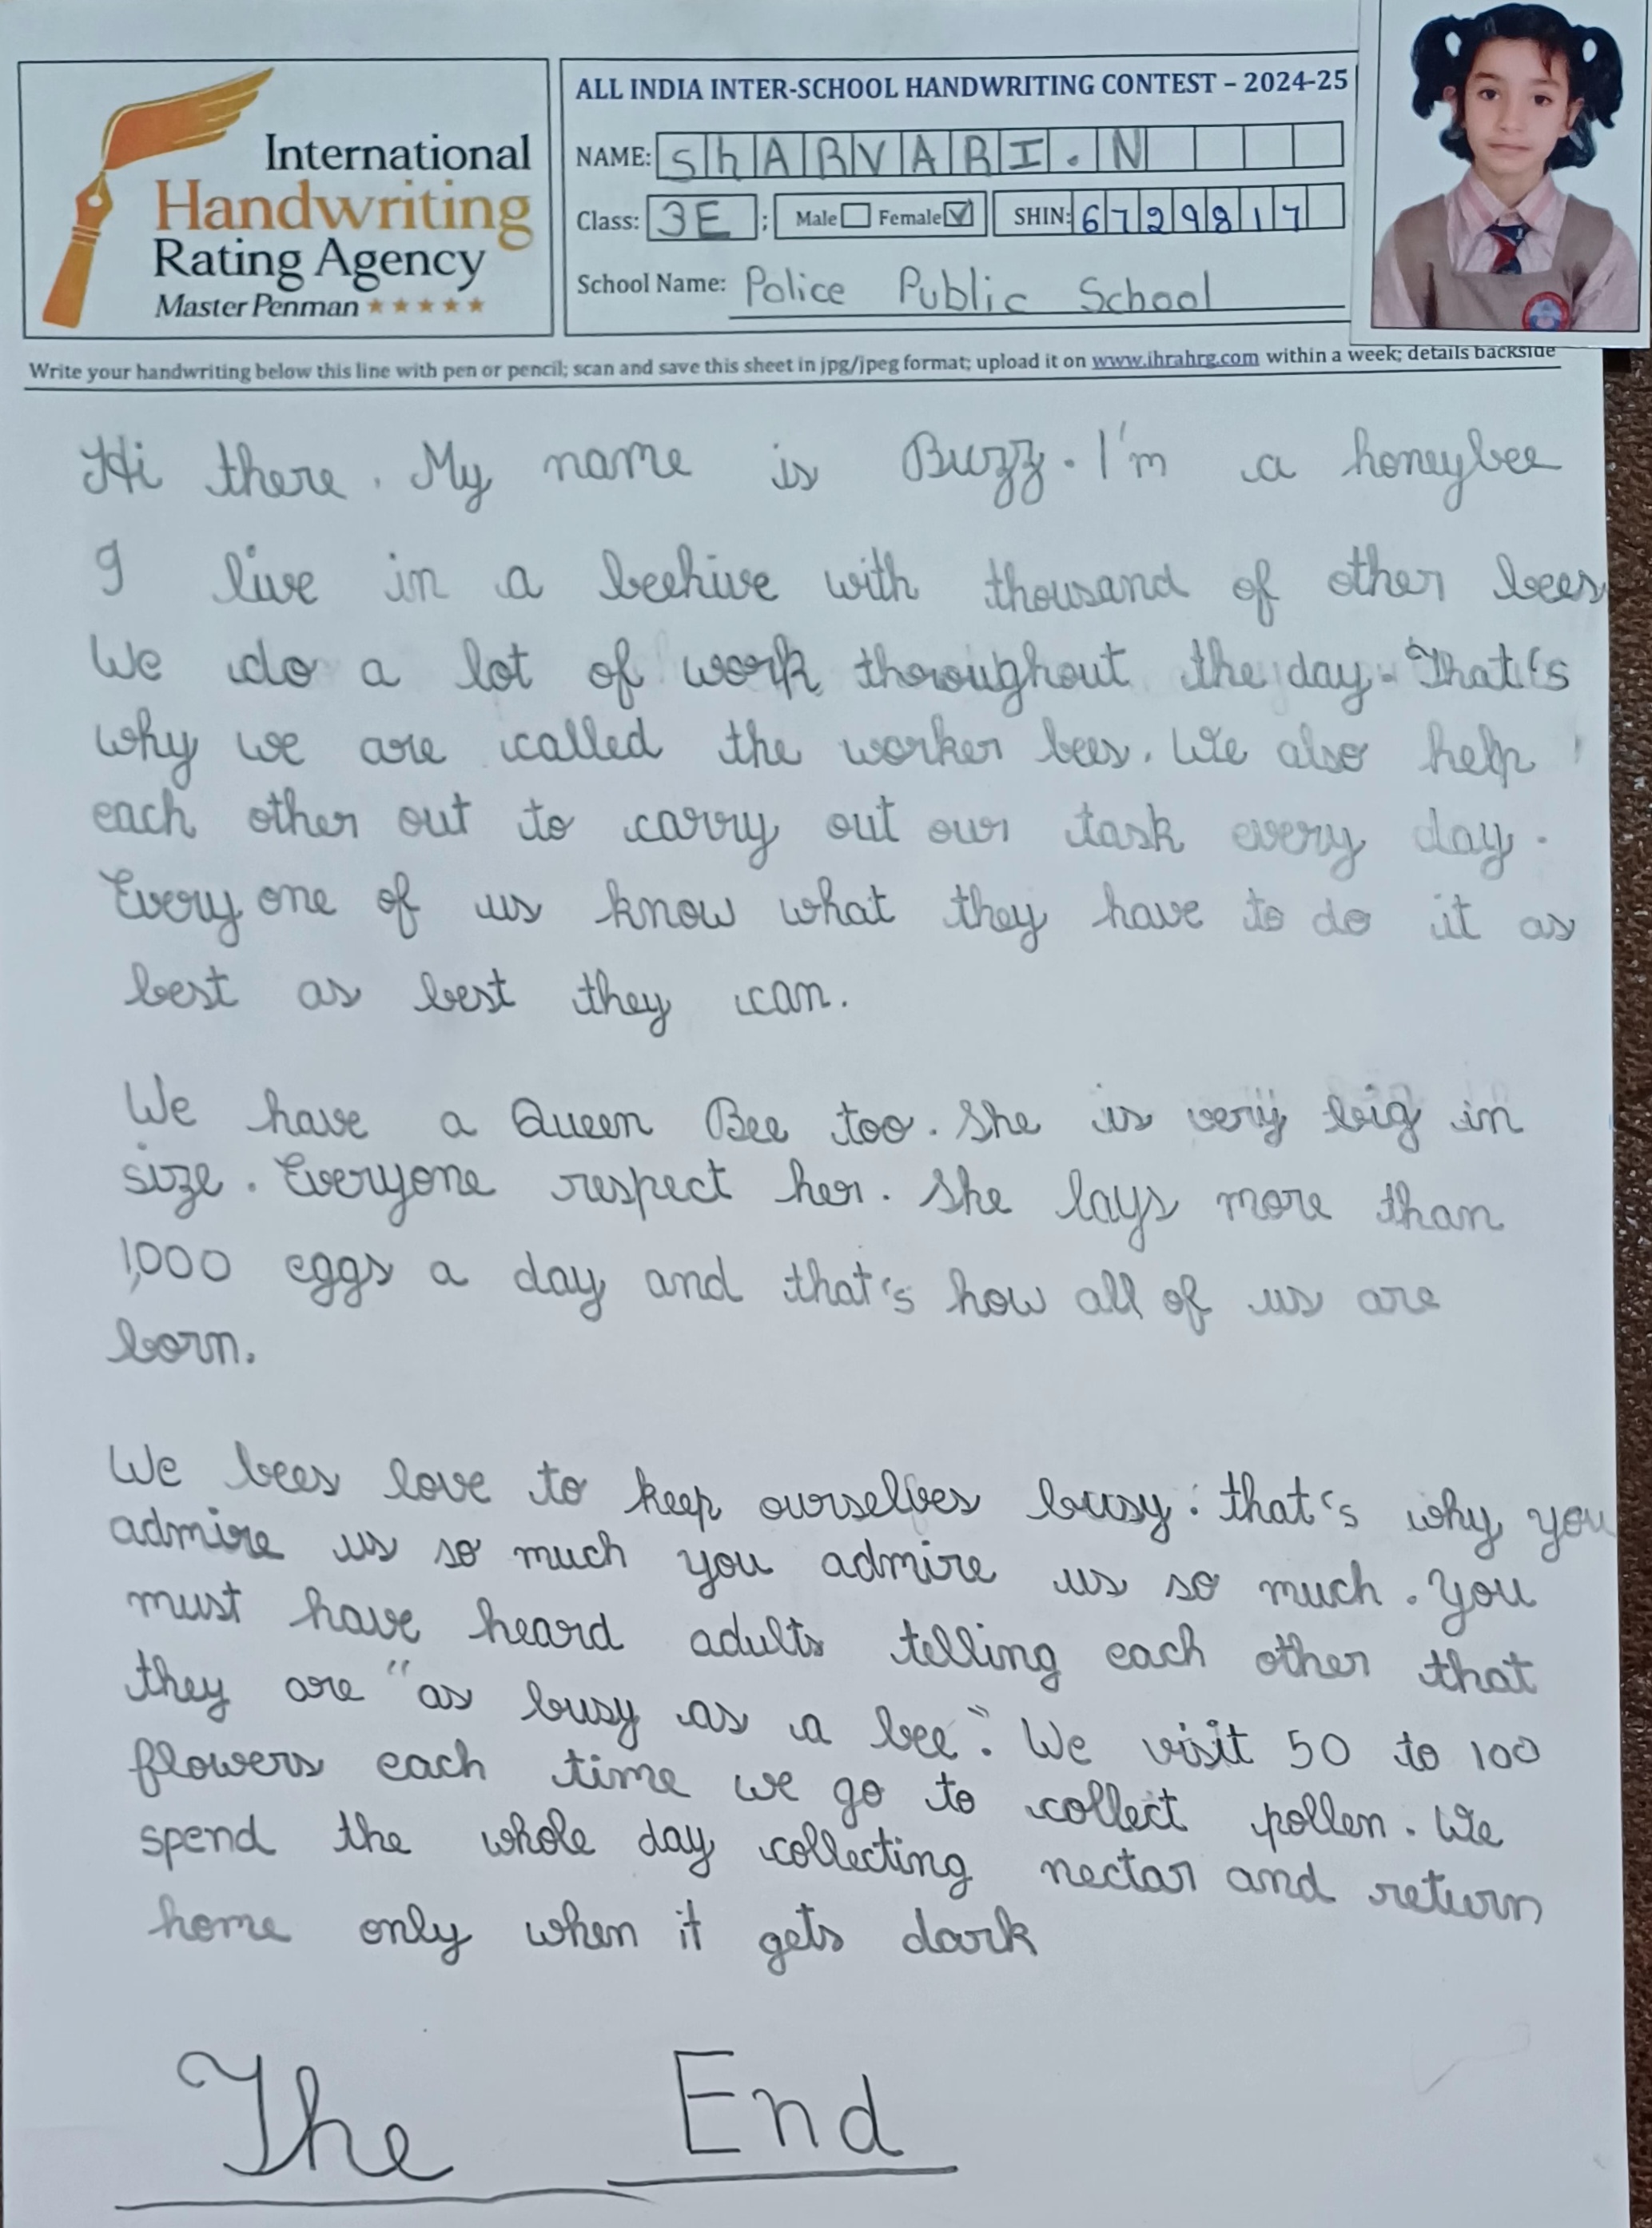 International
Handwriting
Rating Agency
Master Penman ★★★★★
ALL INDIA INTER-SCHOOL HANDWRITING CONTEST – 2024-25
NAME: ShARVARI.N
Class: 3E ; Male Female SHIN: 6729817
School Name: Police Public School
Write your handwriting below this line with pen or pencil; scan and save this sheet in jpg/jpeg format; upload it on www.ihrahrg.com within a week; details backside
Hi there. My name is Buzz. I'm a honeybee
I live in a beehive with thousand of other bees
We do a lot of work thoroughout the day. That's
why we are called the worker bees. We also help
each other out to carry out our task every day.
Every one of us know what they have to do it as
best as best they can.
We have a Queen Bee too. She is very big in
size. Everyone respect her. She lays more than
1,000 eggs a day and that's how all of us are
born.
We bees love to keep ourselves busy. that's why you
admire us so much you admire us so much. you
must have heard adults telling each other that
they are "as busy as a bee". We visit 50 to 100
flowers each time we go to collect pollen. We
spend the whole day collecting nectar and return
home only when it gets dark
The End